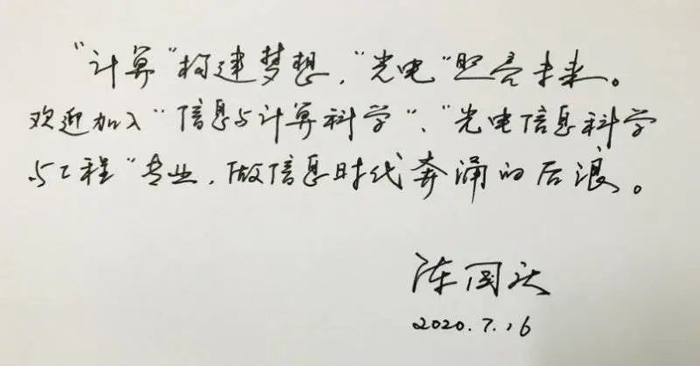 “计算”构建梦想，“光电”照亮未来。
欢迎加入“信息与计算科学”、“光电信息科学
与工程”专业，做信息时代奔涌的后浪。
陈国庆
2020.7.16